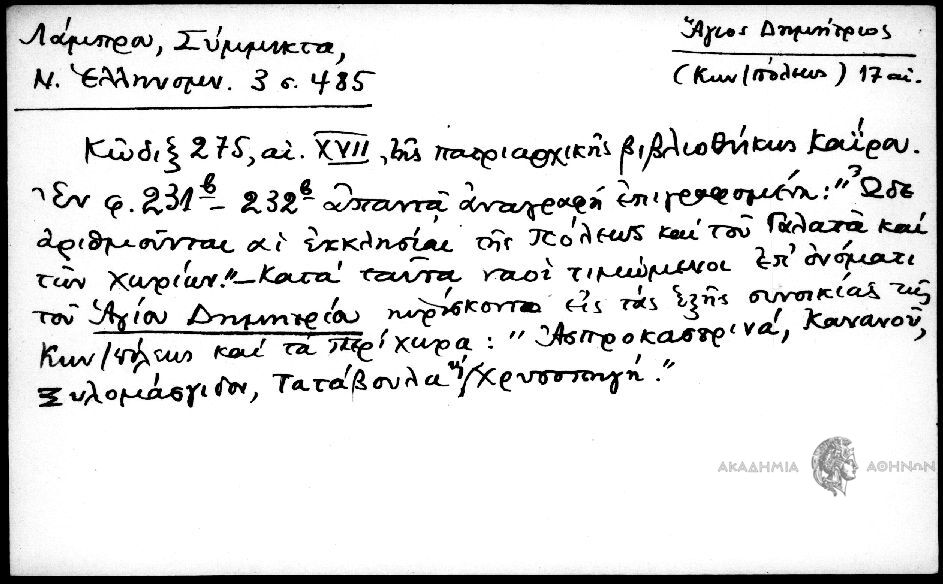 Λάμπρου, Σύμμικτα,
Ν. Ἑλληνομν. 3 σ. 485
Ἅγιος Δημήτριος
(Κων/πόλεως) 17 αἰ.
Κῶδιξ 275, αἰ. XVII, τῆς πατριαρχικῆς βιβλιοθήκης Καΐρου.
Ἐν φ. 231β – 232β ἀπαντᾷ ἀναγραφὴ ἐπιγραφομένη: "Ὧδε
ἀριθμοῦνται αἱ ἐκκλησίαι τῆς Πόλεως καὶ τοῦ Γαλατᾶ καὶ
τῶν χωρίων." – Κατὰ ταῦτα ναοὶ τιμώμενοι ἐπ' ὀνόματι
τοῦ Ἁγίου Δημητρίου ηὑρίσκοντο εἰς τὰς ἑξῆς συνοικίας τῆς
Κων/πόλεως καὶ τὰ περίχωρα: "Ἀσπροκαστρινά, Κανανοῦ,
Ξυλομάσγιδον, Τατάβουλα ἢ/Χρυσοπηγή."
ΑΚΑΔΗΜΙΑ ΑΘΗΝΩΝ